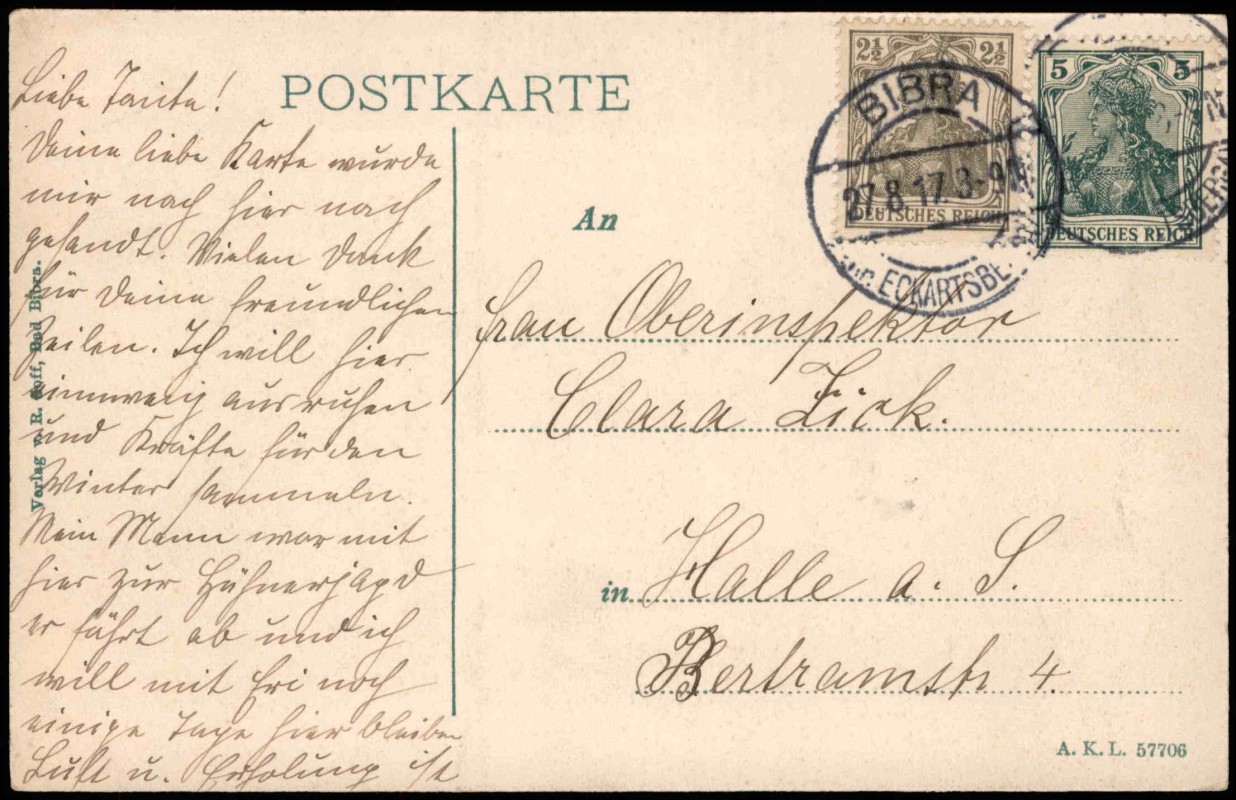 POSTKARTE
Liebe Tante!
Deine liebe Karte wurde
mir nach hier nach
gesandt. Vielen Dank
für Deine freundlichen
Zeilen. Ich will hier
ein wenig ausruhen
und Kräfte für den
Winter sammeln.
Mein Mann war mit
hier zur Hühnerjagd
er fährt ab und ich
will mit noch
einige Tage hier bleiben
Luft u. Erholung ist
Verlag v. R. Hoff, Bad Bibra.
2½ 2½
DEUTSCHES REICH
5 5
DEUTSCHES REICH
BIBRA
27.8.17. 8-9
ECKARTSBE
An
Frau Oberinspektor
Clara Zick.
in Halle a. S.
Bertramstr 4.
A. K. L. 57706